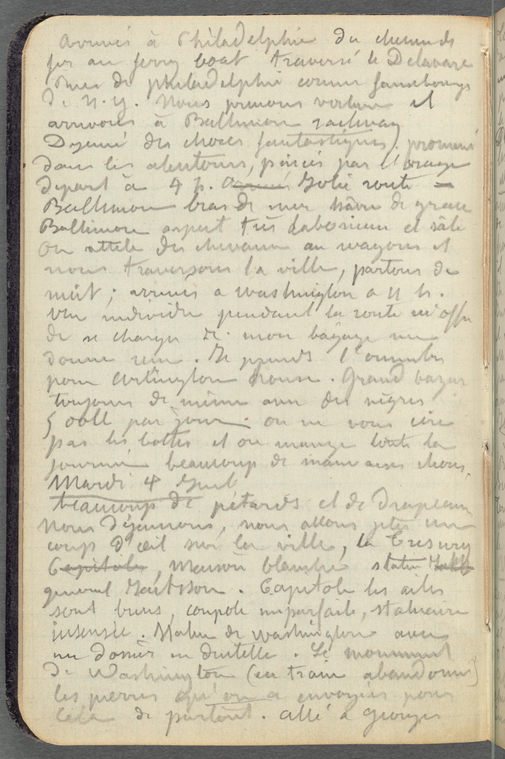 Arrivés à Philadelphie du chemin de
fer au ferry boat traversé le Delavare
de philadelphie comme faubourgs
de N. Y. Nous prenons voiture et
arrivons à Baltimore railway
Déjeuné des choses fantastiques, promené
dans les alentours, pincés par l'orage
départ à 4 h. Jolie route —
Baltimore bras de mer hâvre de grace
Baltimore aspect très laborieux et sâle
On attele des chevaux au wagons et
nous traversons la ville, partons de
nuit ; arrivés a Washington a 11 h.
un individu pendant la route m'offre
de se charger de mon bagage me
donne rien. Je prends l'omnibus
pour Arlington House. Grand bazar
toujours de même avec des nègres
5 doll par jour. on ne vous cire
pas les bottes et on mange toute la
journée beaucoup de mauvaises choses.
Mardi 4 Juil
beaucoup de pétards et de Drapeaux
Nous Déjeunons, nous allons jeter un
coup d'œil sur la ville, la Tresury
Capitole, Maison blanche statue
general Jackson. Capitole les ailes
sont bien, coupole imparfaite, statuaire
insensée. Statue de Washington avec
un dossier en dentelle. Le monument
de Washington (en train abandonné)
les pierres qu'on a envoyées pour
cela de partout. allé à Georges